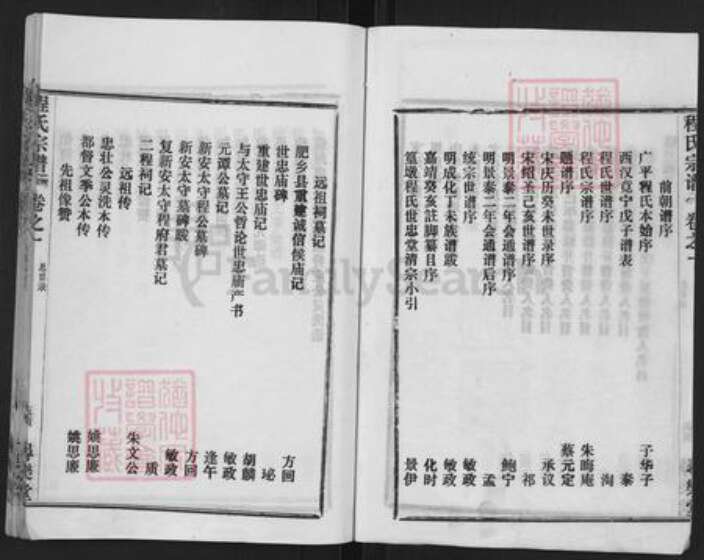 程氏宗谱 卷之一
前朝谱序
广平程氏本始序 子华子
西汉竟宁戊子谱表 秦
程氏世谱序 淘
程氏宗谱序 朱晦庵
题谱序 蔡元定
宋庆历癸未世录序 承议
宋绍圣己亥世谱序 祁
明景泰二年会通谱序 鲍宁
明景泰二年会通谱后序 孟
统宗世谱序 敏政
明成化丁未族谱跋 敏政
嘉靖癸亥註脚纂目序 化时
篁墩程氏世忠堂清宗小引 景伊
远祖祠墓记
肥乡县重建诚信候庙记 方回
世忠庙碑 珌
重建世忠庙记 胡麟
与太守王公哲论世忠庙产书 敏政
元谭公墓记 逢午
新安太守程公墓碑 方回
新安太守墓碑跋 敏政
复新安太守程府君墓记 质
二程祠记 朱文公
远祖传
忠壮公灵洗本传 姚思廉
都督文季公本传 姚思廉
先祖像赞
程氏宗谱 卷之一 总目录
FamilySearch